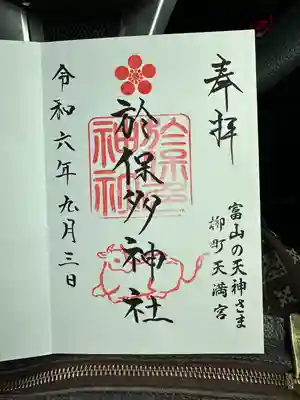 奉拝
富山の天神さま
柳町天満宮
於保多神社
於保多
神社
令和六年九月三日